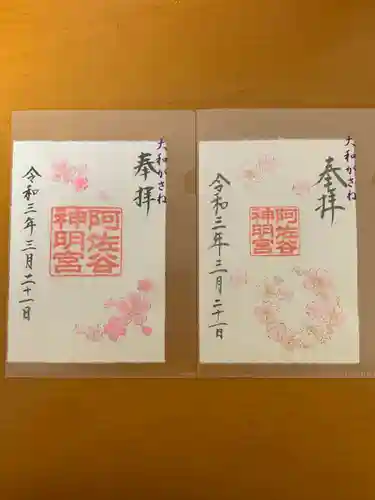 大和がさね
奉拝
阿佐谷
神明宮
令和三年三月二十一日
大和がさね
奉拝
阿佐谷
神明宮
令和三年三月二十一日